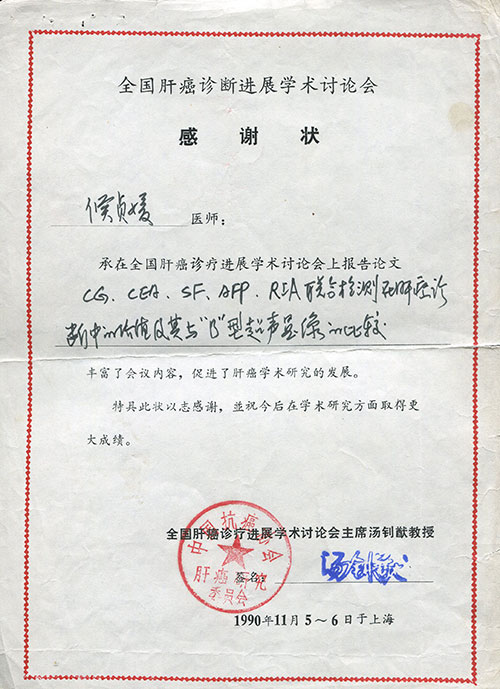 全国肝癌诊断进展学术讨论会
感谢状
侯贞媛 医师：
承在全国肝癌诊疗进展学术讨论会上报告论文
CG、CEA、SF、AFP、RIA联合检测在肝癌诊
断中的价值及其与“B”型超声显像的比较
丰富了会议内容，促进了肝癌学术研究的发展。
特具此状以志感谢，並祝今后在学术研究方面取得更
大成绩。
全国肝癌诊疗进展学术讨论会主席汤钊猷教授
签名 汤钊猷
中国抗癌协会
肝癌研究
委员会
1990年11月5～6日于上海